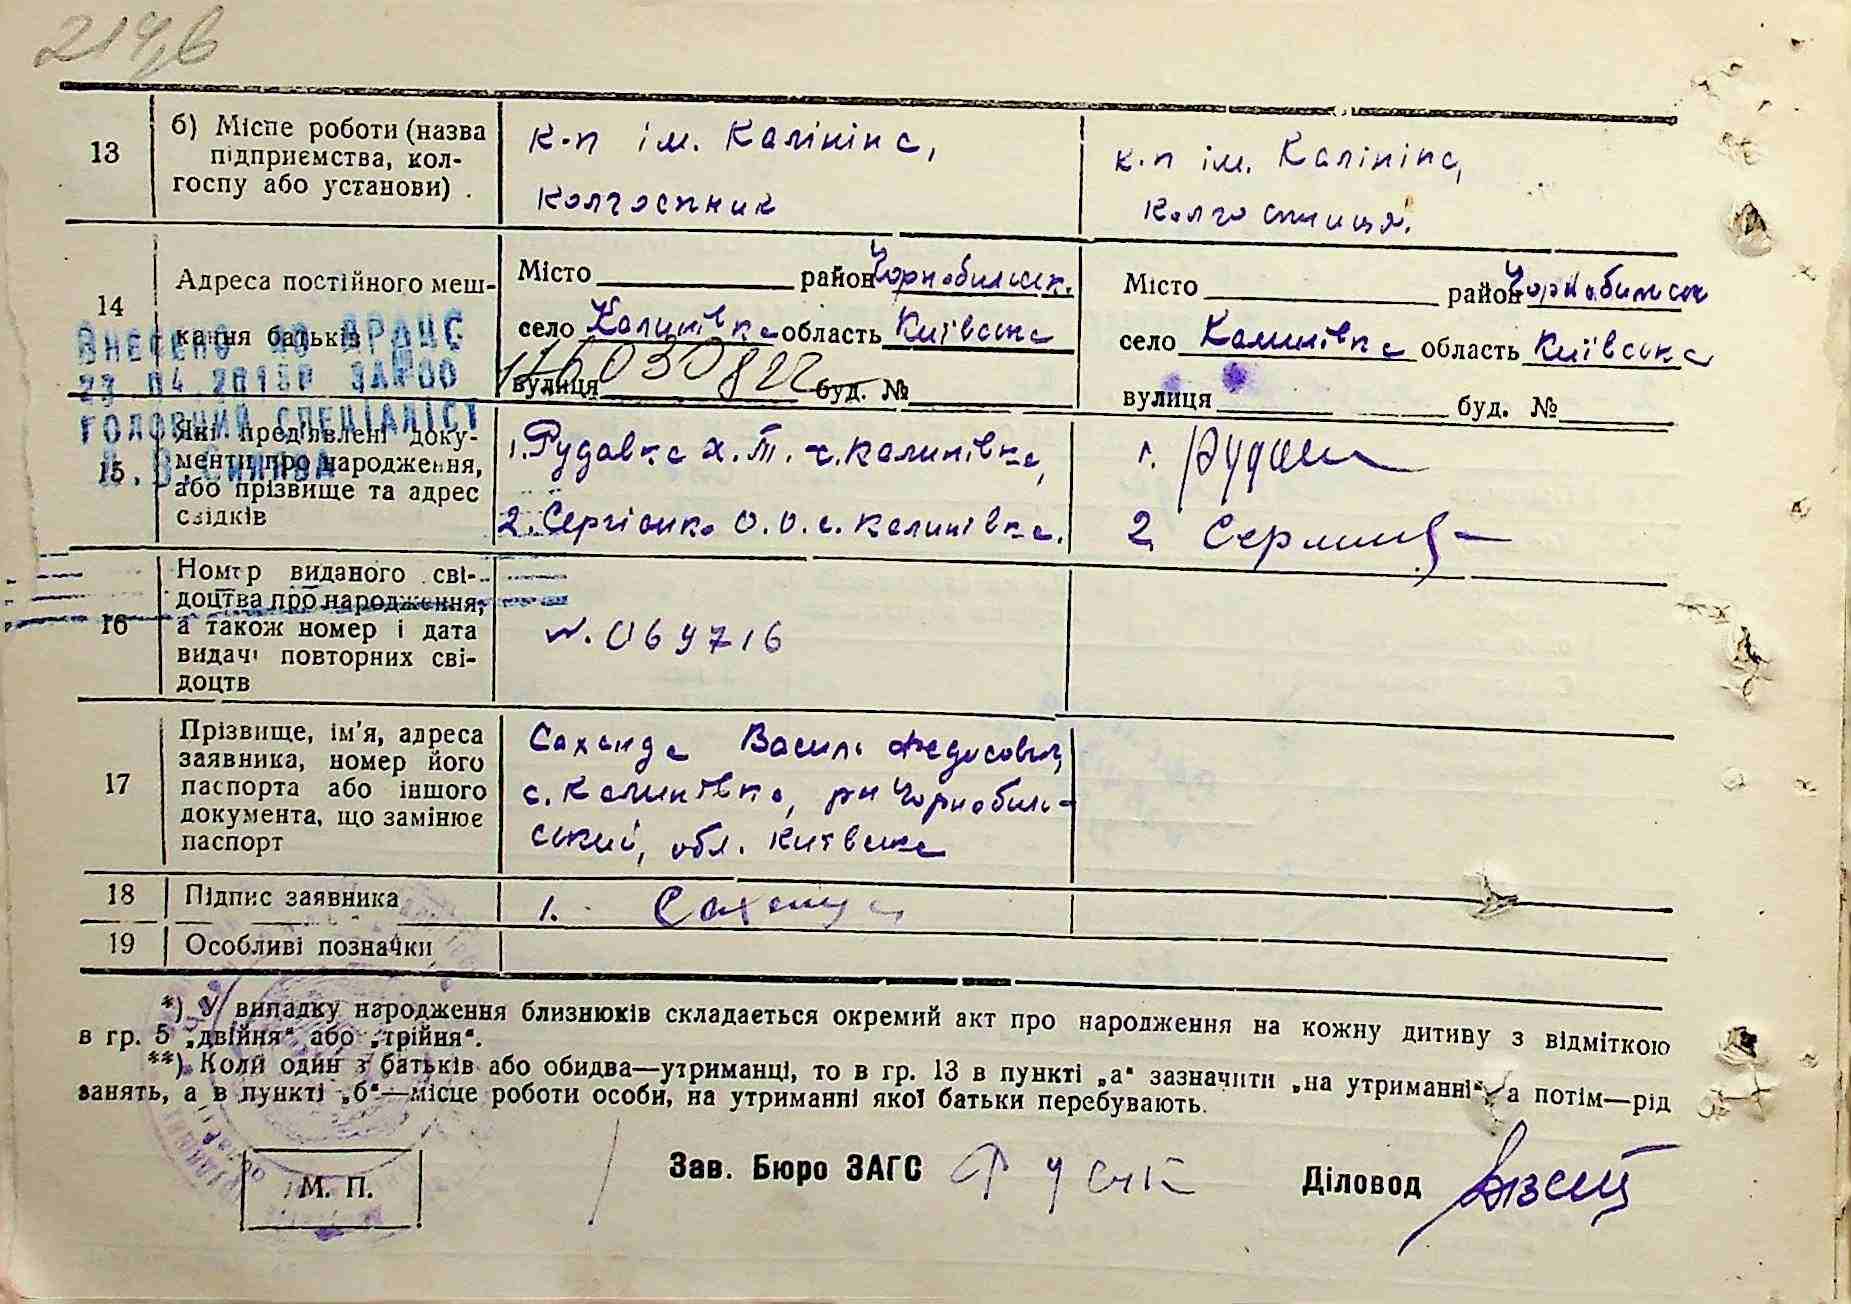 214,в
13 б) Місце роботи (назва підприємства, колгоспу або установи) .
к-п ім. Калініна,
колгоспник
к-п ім. Калініна,
колгоспниця.
14 Адреса постійного мешкання батьків
Місто район Чорнобильск.
село Калинівка область Київська
вулиця буд. №
Місто район Чорнобильск
село Калинівка область Київська
вулиця буд. №
176030822
ВНЕСЕНО ДО ДРАЦС
ГОЛОВНИЙ СПЕЦІАЛІСТ
15. Які пред'явлені документи про народження, або прізвище та адрес свідків
1. Рудавка Х. Т. с. Калинівка,
2. Сергієнко О. О. с. Калинівка.
1.
2
16 Номер виданого свідоцтва про народження, а також номер і дата видачі повторних свідоцтв
N. 069716
17 Прізвище, ім'я, адреса заявника, номер його паспорта або іншого документа, що замінює паспорт
Саханда Василь Федосович
с. Калинівка, р-н Чорнобиль-
ський, обл. Київська
18 Підпис заявника
1. Саханда
19 Особливі позначки
*) У випадку народження близнюків складається окремий акт про народження на кожну дитину з відміткою
в гр. 5 „двійня“ або „трійня“.
**) Коли один з батьків або обидва—утриманці, то в гр. 13 в пункті „а“ зазначити „на утриманні“, а потім—рід
занять, а в пункті „б“—місце роботи особи, на утриманні якої батьки перебувають.
М. П.
Зав. Бюро ЗАГС
Діловод